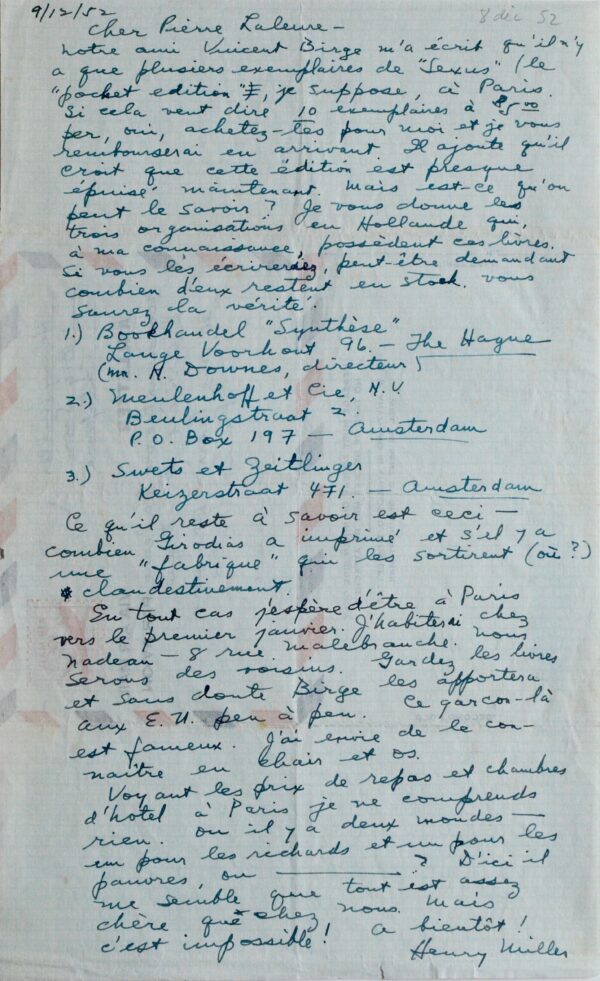 9/12/52
8 déc 52
Cher Pierre Laleure –
notre ami Vincent Birge m'a écrit qu'il n'y
a que plusiers exemplaires de "Sexus" (le
"pocket edition", je suppose, à Paris.
Si cela veut dire 10 exemplaires à $5.00
per, oui, achetez-les pour moi et je vous
rembourserai en arrivant. Il ajoute qu'il
croit que cette édition est presque
épuisé maintenant. Mais est-ce qu'on
peut le savoir? Je vous donne les
trois organisations en Hollande qui,
à ma connaissance, possèdent ces livres.
Si vous les écrirerdez, peut-être demandant
combien d'eux restent en stock. vous
saurez la vérité.
1.) Boekhandel "Synthèse"
Lange Voorhout 96. – The Hague
(mr. R. Downes, directeur)
2.) Meulenhoff et Cie, N.V.
Beulingstraat 2.
P.O. Box 197 – Amsterdam
3.) Swets et Zeitlinger
Keizerstraat 471. – Amsterdam
Ce qu'il reste à savoir est ceci –
combien Girodias a imprimé et s'il y a
une "fabrique" qui les sortirent (où?)
clandestinement.
En tout cas j'espère d'être à Paris
vers le premier janvier. J'habiterai chez
Nadeau – 8 rue Malebranche. Nous
serons des voisins. Gardez les livres
et sans doute Birge les apportera
aux E.U. peu à peu. Ce garcon-là
est fameux. J'ai envie de le con-
naître en chair et os.
Voyant les prix de repas et chambres
d'hotel à Paris je ne comprends
rien. Ou il y a deux mondes –
un pour les richards et un pour les
pauvres, ou ———? D'ici il
me semble que tout est assez
chère que chez nous. Mais
c'est impossible! A bientôt!
Henry Miller